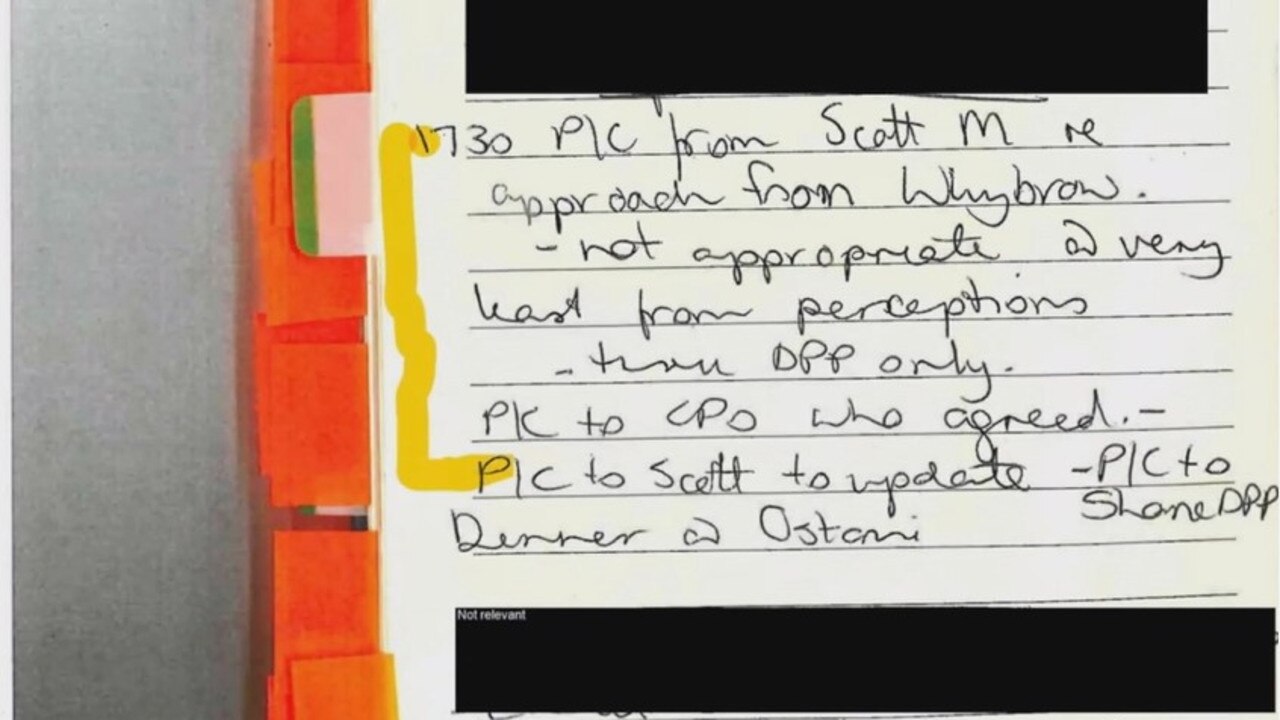 1730 P/C from Scott M re
approach from Whybrow.
- not appropriate @ very
least from perceptions
- thru DPP only.
P/C to CPO who agreed. -
P/C to Scott to update - P/C to
Shane DPP
Dinner @ Ostani
Not relevant